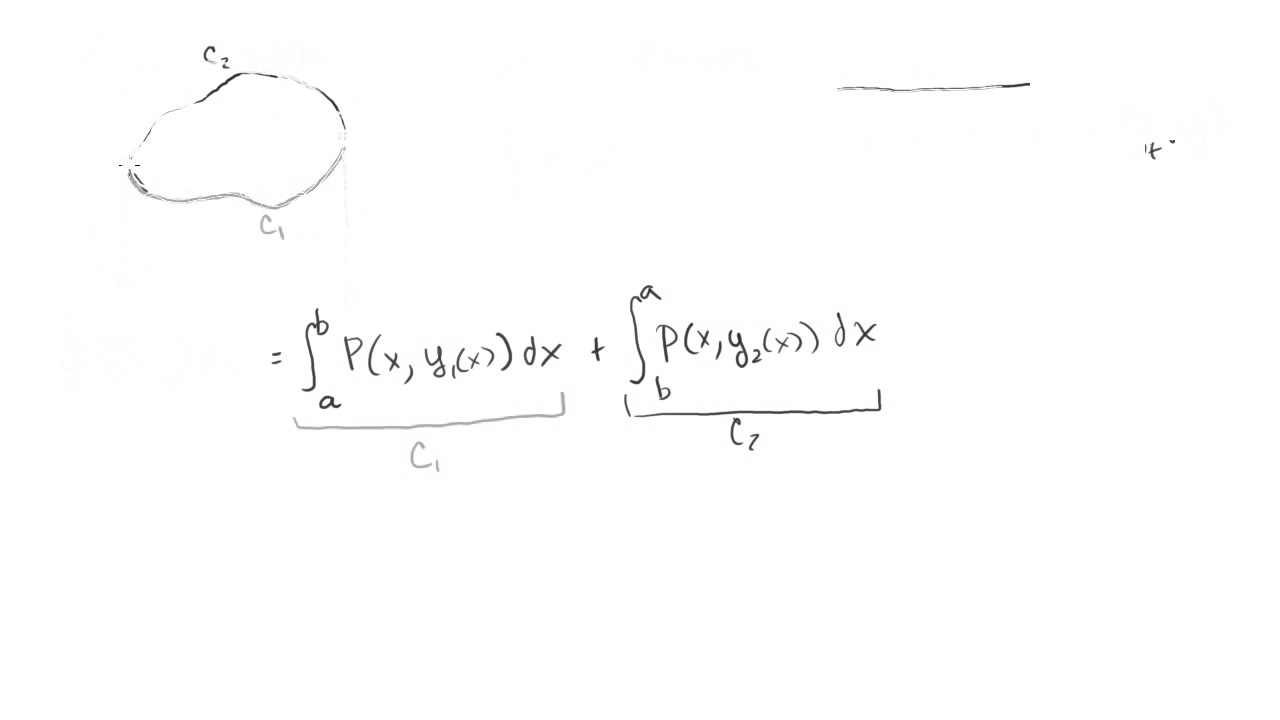 C₂
C₁
= ∫_a^b P(x, y₁(x)) dx + ∫_b^a P(x, y₂(x)) dx
C₁ C₂